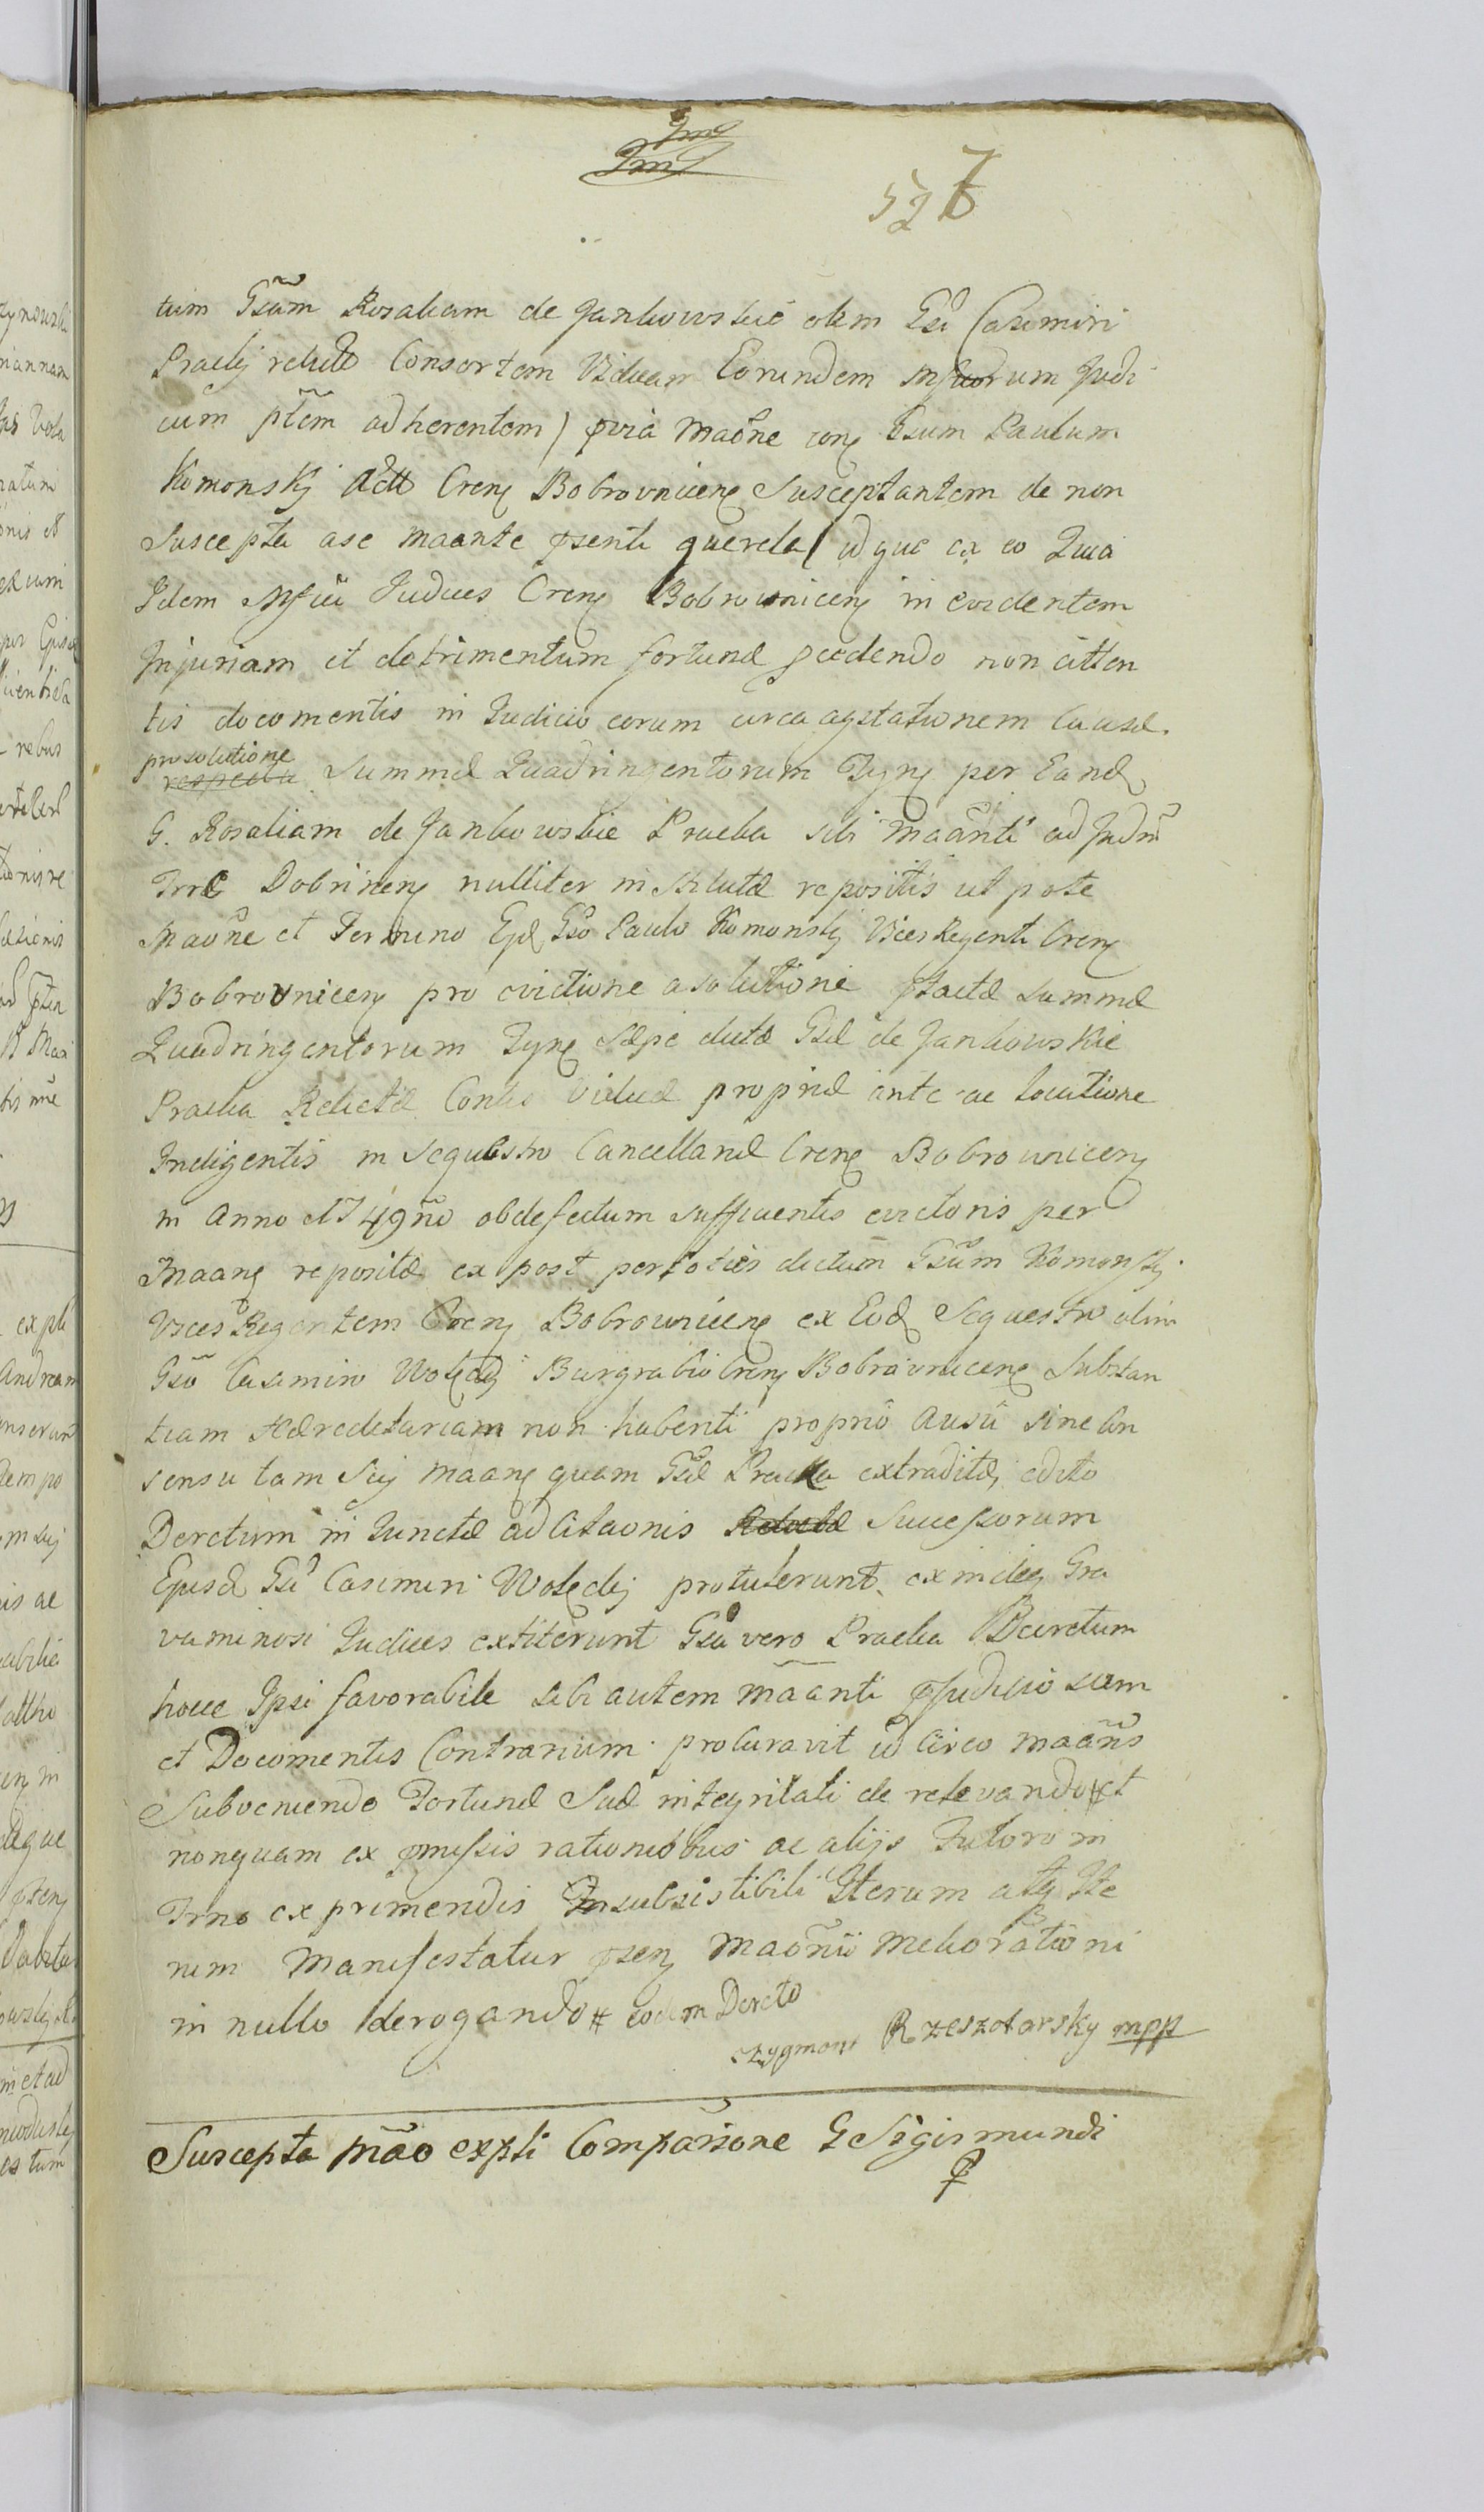 527
tum Gsũm Rosaliam de Jankowskie olim Gsi Casimiri
Pracki relictã Consortem Viduam Eorundem Mfficorum Judi
cum ptem adherentem) quia Maõne conq Gsum Paulum
Komonskj Act Crenq Bobrovnicenq Susceptantem de non
Suscepta a se maante psenti querela) idque ex eo Quia
Idem Mfici Judices Crenq Bobrownicenq in evidentem
Injuriam et detrimentum fortunæ procedendo non atten
tis documentis in Judicio eorum circa agitationem Causæ
pro solutione
respectu Summæ Quadringentorum Tynq per Eandẽ
G. Rosaliam de Jankowskie Pracka sibi Maãnti ad Judm̃
Trrẽ Dobrinenq nulliter institutæ repositis ut pote
Maõne et Termino Ejdẽ Gso Paulo Komonskj Vices Regenti Crenq
Bobrovnicenq pro evictione a solutione ptactæ summæ
Quadringentorum Tynq sæpe dictæ Gsæ de Jankowskie
Pracka Relictæ Contis Viduæ propriæ ante ac locutione
Indigentis in Sequestro Cancellariæ Crenq Bobrownicenq
in Anno 1749nõ ob defectum sufficientis evictoris per
Maanq repositæ ex post per toties dictum Gsũm Komonskj
Vices Regentem Crenq Bobrownicenq ex Eodẽ Sequestro olim
Gsõ Casimiro Burgrabio Crenq Bobrovnicenq Substan
tiam Hæreditariam non habenti proprio Ausu sine Con
sensu tam Sui Maanq quam Gsæ Pracka extraditæ edito
Decretum in Junctæ ad Citaonis Relictæ Successorum
Ejusdẽ Gsi Casimiri protulerunt ex indeq Gra
vaminosi Judices extiterunt Gsa vero Pracka Decretum
hocce Ipsi favorabile sibi autem mãanti pjudiciosum
et Documentis Contrarium procuravit id circo maãns
Subveniendo Fortunæ Suæ integritati de relevando # et
nonquam ex pmissis rationibus ac alijs Futoro in
Trno exprimendis Insubsistibili Iterum atq Ite
rum Manifestatur psenq Maõnis Melioratioñi
in nullo derogando # eodem Dercto
Zygmont Rzeszotarsky mpp
Suscepta mão expti Comparione G Sigismundi